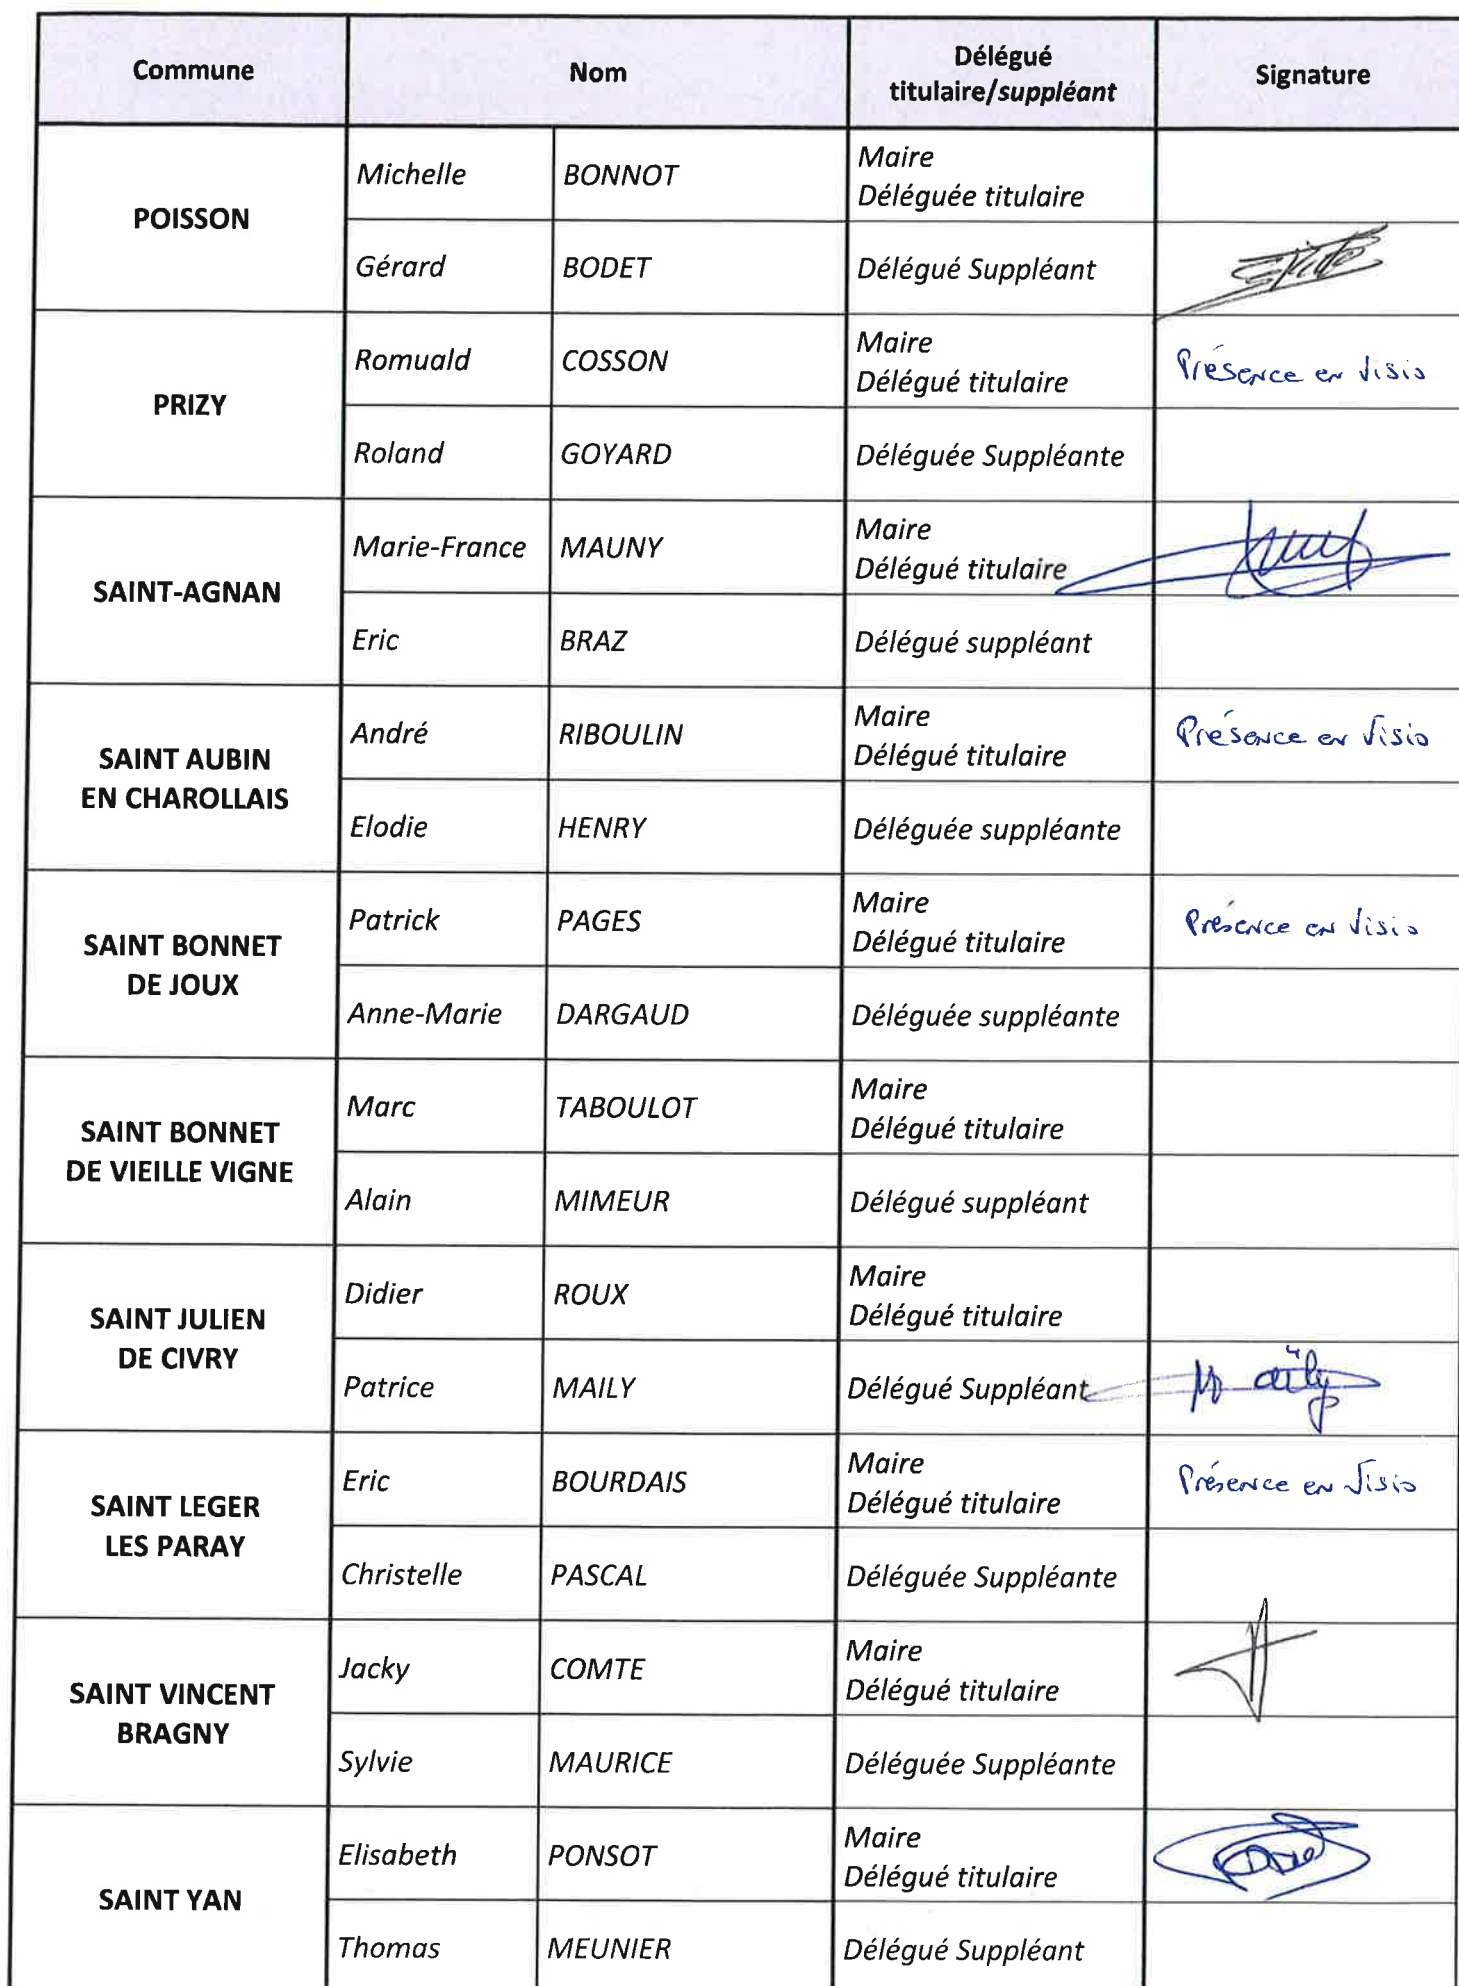 Commune
Nom
Délégué
titulaire/suppléant
Signature
POISSON
Michelle
BONNOT
Maire
Déléguée titulaire
Gérard
BODET
Délégué Suppléant
PRIZY
Romuald
COSSON
Maire
Délégué titulaire
Présence en visio
Roland
GOYARD
Déléguée Suppléante
SAINT-AGNAN
Marie-France
MAUNY
Maire
Délégué titulaire
Eric
BRAZ
Délégué suppléant
SAINT AUBIN
EN CHAROLLAIS
André
RIBOULIN
Maire
Délégué titulaire
Présence en visio
Elodie
HENRY
Déléguée suppléante
SAINT BONNET
DE JOUX
Patrick
PAGES
Maire
Délégué titulaire
Présence en visio
Anne-Marie
DARGAUD
Déléguée suppléante
SAINT BONNET
DE VIEILLE VIGNE
Marc
TABOULOT
Maire
Délégué titulaire
Alain
MIMEUR
Délégué suppléant
SAINT JULIEN
DE CIVRY
Didier
ROUX
Maire
Délégué titulaire
Patrice
MAILY
Délégué Suppléant
SAINT LEGER
LES PARAY
Eric
BOURDAIS
Maire
Délégué titulaire
Présence en visio
Christelle
PASCAL
Déléguée Suppléante
SAINT VINCENT
BRAGNY
Jacky
COMTE
Maire
Délégué titulaire
Sylvie
MAURICE
Déléguée Suppléante
SAINT YAN
Elisabeth
PONSOT
Maire
Délégué titulaire
Thomas
MEUNIER
Délégué Suppléant